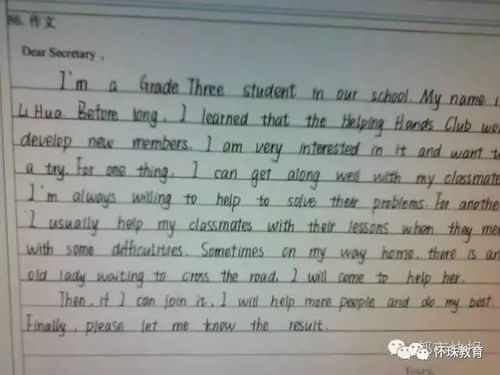 86. 作文
Dear Secretary,
I'm a Grade Three student in our school. My name i
Li Hua. Before long, I learned that the Helping Hands Club wou
develop new members. I am very interested in it and want t
a try. For one thing, I can get along well with my classmate
I'm always willing to help to solve their problems. For another
I usually help my classmates with their lessons when they mee
with some difficulities. Sometimes on my way home, there is an
old lady waiting to cross the road, I will come to help her.
Then, if I can join it, I will help more people and do my best.
Finally, please let me know the result.
怀珠教育
Yours,